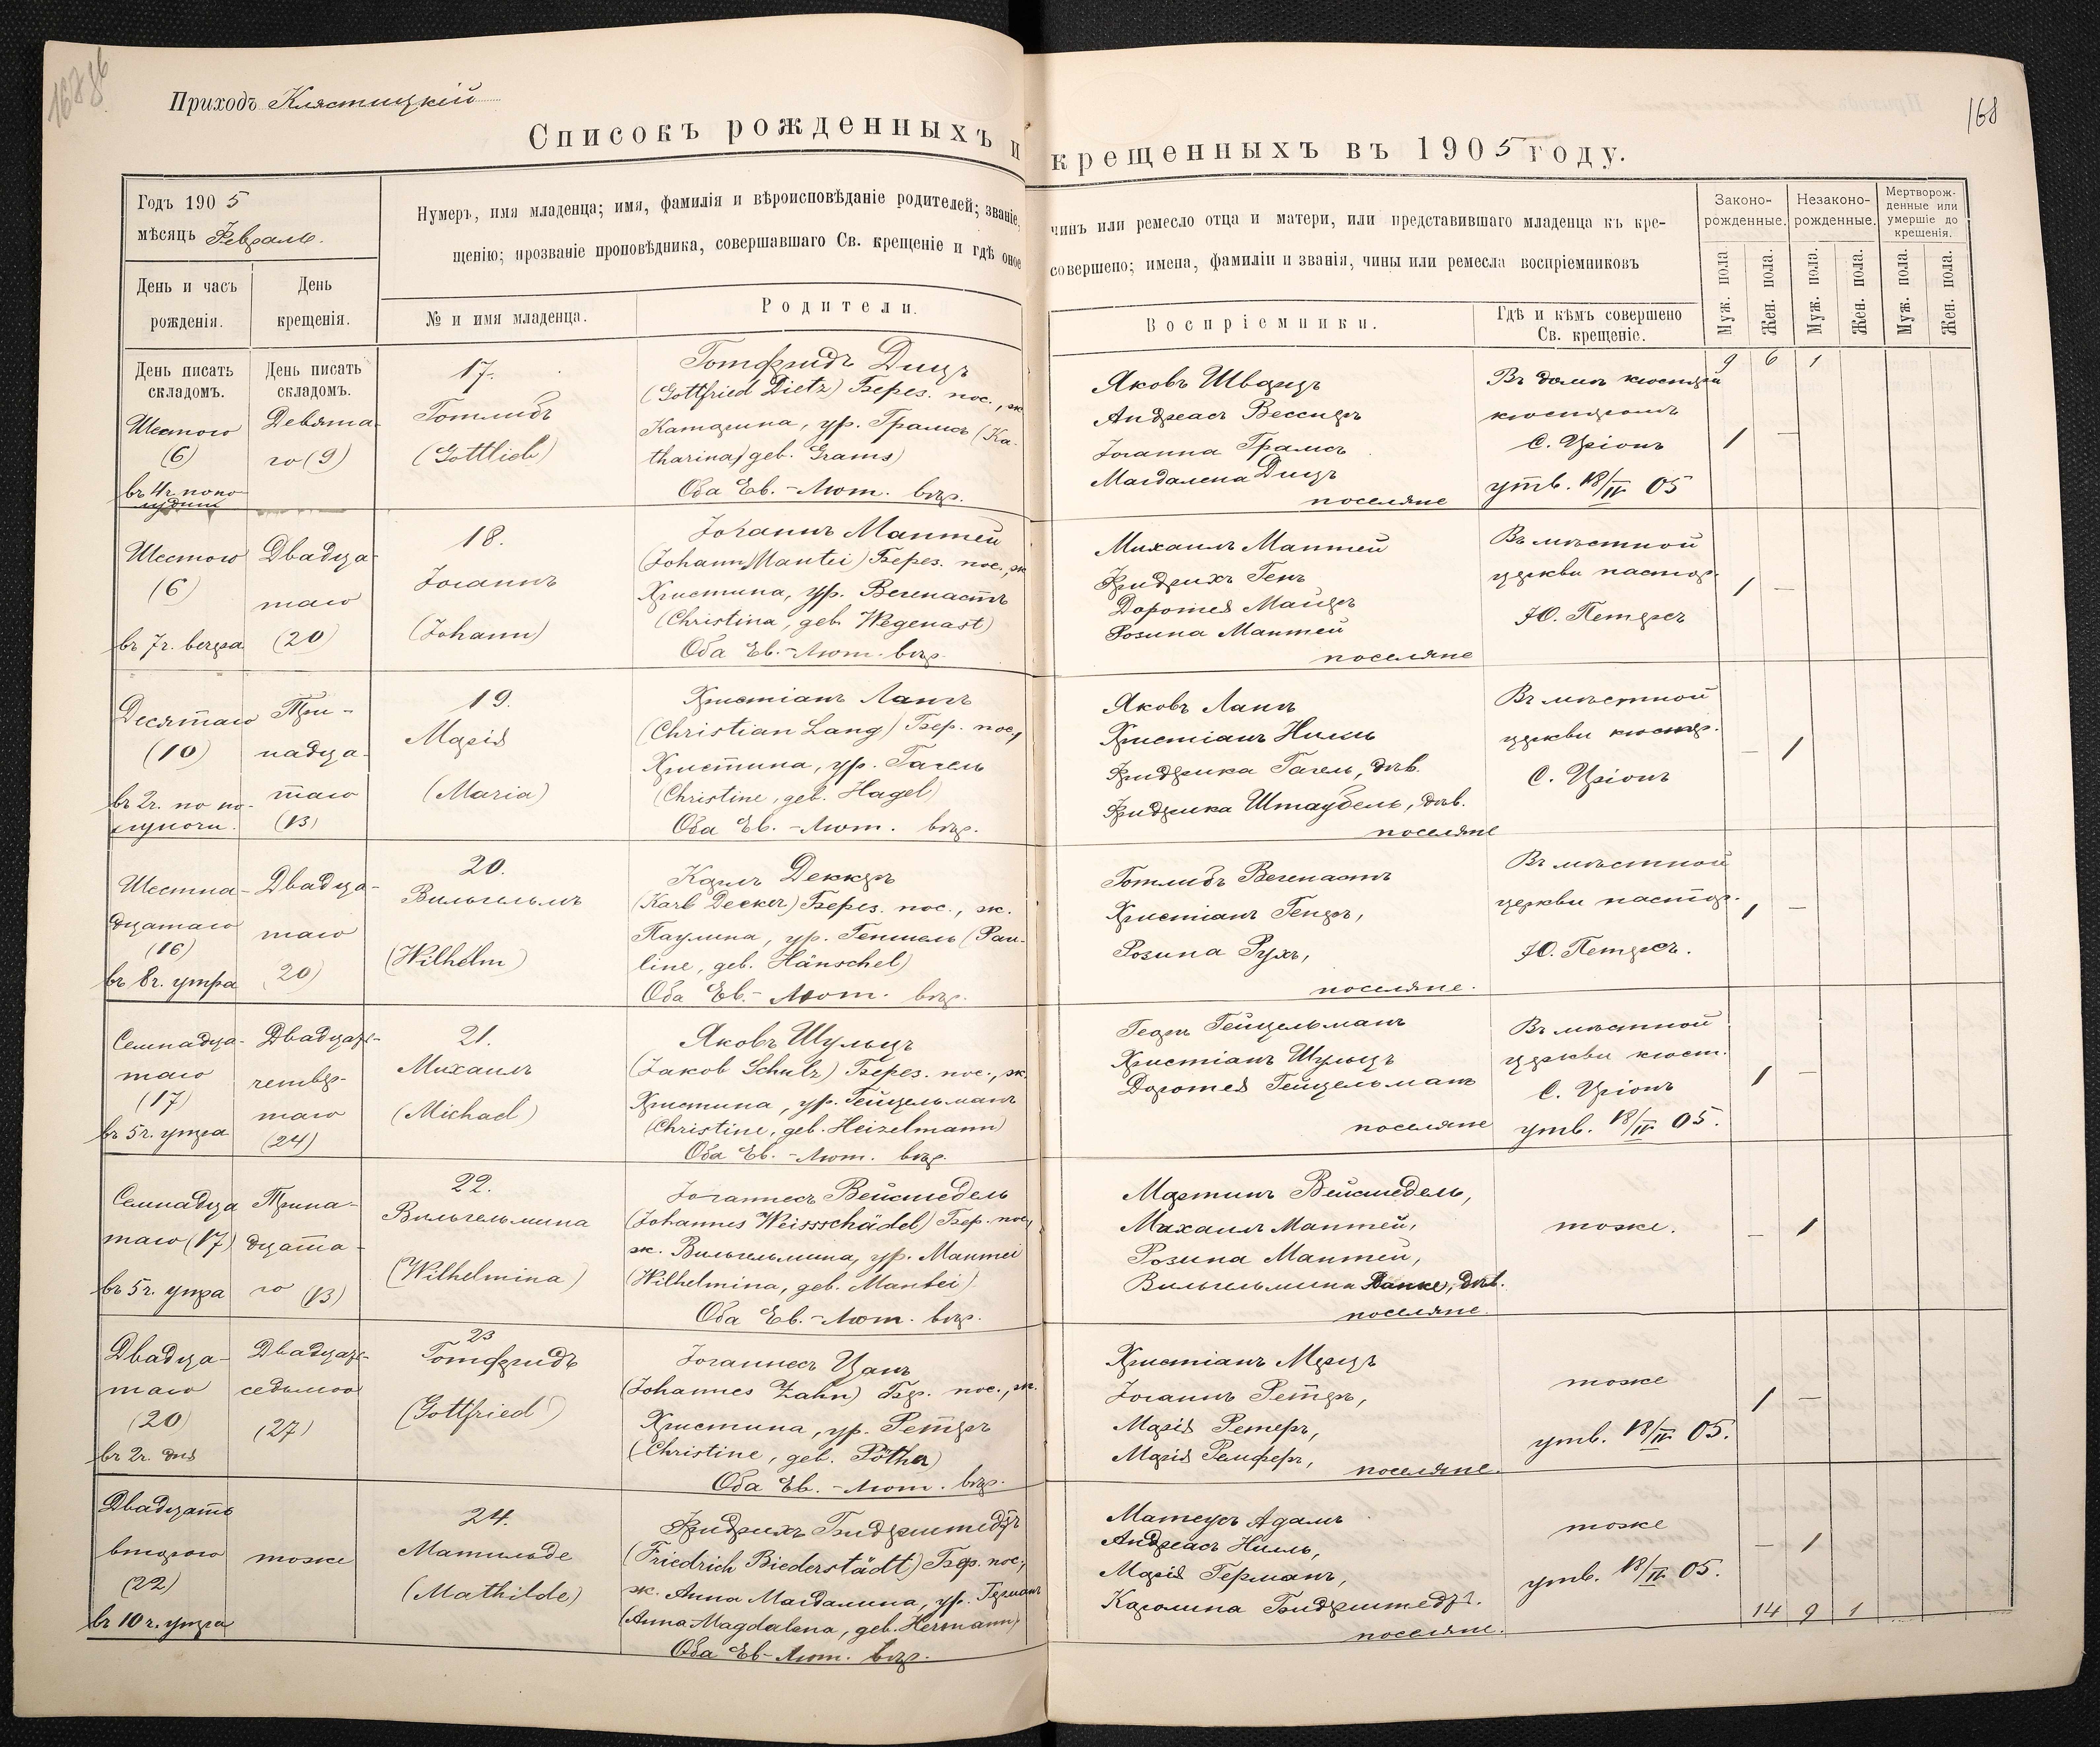 168
Приходъ Клястицкій
Списокъ рожденныхъ и крещенныхъ въ 1905 году.
Годъ 1905
мѣсяцъ Февраль.
Нумеръ, имя младенца; имя, фамилія и вѣроисповѣданіе родителей; званіе, чинъ или ремесло отца и матери, или представившаго младенца къ кре-
щенію; прозваніе проповѣдника, совершавшаго Св. крещеніе и гдѣ оное совершено; имена, фамиліи и званія, чины или ремесла воспріемниковъ
Законо-
рожденные.
Незаконо-
рожденные.
Мертворож-
денные или
умершіе до
крещенія.
День и часъ
рожденія.
День
крещенія.
№ и имя младенца.
Родители.
Воспріемники.
Гдѣ и кѣмъ совершено
Св. крещеніе.
Муж. пола
Жен. пола.
Муж. пола.
Жен. пола.
Муж. пола.
Жен. пола.
День писать
складомъ.
День писать
складомъ.
9 6 1
Шестого
(6)
въ 4 ч. по по-
лудни
Девята-
го (9)
17.
Готлибъ
(Gottlieb)
Готфридъ Дицъ
(Gottfried Dietz) Берез. пос., ж.
Катарина, ур. Грамсъ (Ka-
tharina, geb. Grams)
Оба Ев.-Лют. вѣр.
Яковъ Шварцъ
Андреасъ Вессиръ
Іоганна Грамсъ
Магдалена Дицъ
поселяне
Въ домѣ кюстера
кюстеромъ
С. Цріонъ
утв. 18/IV 05
1 —
Шестого
(6)
въ 7 ч. вечера
Двадца-
таго
(20)
18.
Іоганнъ
(Johann)
Іоганнъ Мантей
(Johann Mantei) Берез. пос., ж
Христина, ур. Вегенастъ
(Christina, geb. Wegenast)
Оба Ев.-Лют. вѣр.
Михаилъ Мантей
Фридрихъ Генъ
Доротея Майеръ
Розина Мантей
поселяне
Въ мѣстной
церкви пастор.
Ю. Петерсъ
1 —
Десятаго
(10)
въ 2 ч. по по-
луночи.
Три-
надца-
таго
(13)
19.
Марія
(Maria)
Христіанъ Лангъ
(Christian Lang) Бер. пос.,
Христина, ур. Гагель
(Christine, geb. Hagel)
Оба Ев.-Лют. вѣр.
Яковъ Лангъ
Христіанъ Нилль
Фридрика Гагель, дѣв.
Фридрика Штаубель, дѣв.
поселяне
Въ мѣстной
церкви кюстер.
С. Цріонъ
— 1
Шестна-
дцатаго
(16)
въ 8 ч. утра
Двадца-
таго
20)
20.
Вильгельмъ
(Wilhelm)
Карлъ Деккеръ
(Karl Decker) Берез. пос., ж.
Паулина, ур. Геншель (Pau-
line, geb. Hänschel)
Оба Ев.-Лют. вѣр.
Готлибъ Вегенастъ
Христіанъ Генеръ,
Розина Рухъ,
поселяне.
Въ мѣстной
церкви пастор.
Ю. Петерсъ.
1 —
Семнадца-
таго
(17)
въ 5 ч. утра
Двадцать-
четвер-
таго
(24)
21.
Михаилъ
(Michael)
Яковъ Шульцъ
(Jakob Schulz) Берез. пос., ж.
Христина, ур. Гейцельманъ
(Christine, geb. Heizelmann)
Оба Ев.-Лют. вѣр.
Георгъ Гейцельманъ
Христіанъ Шульцъ
Доротея Гейцельманъ
поселяне
Въ мѣстной
церкви кюст.
С. Цріонъ
утв. 18/IV 05.
1 —
Семнадца
таго (17)
въ 5 ч. утра
Трина-
дцата-
го (13)
22.
Вильгельмина
(Wilhelmina)
Іоганнесъ Вейсшедель
(Johannes Weissschädel) Бер. пос.,
ж. Вильгельмина, ур. Мантей
(Wilhelmina, geb. Mantei)
Оба Ев.-Лют. вѣр.
Мартинъ Вейсшедель,
Михаилъ Мантей,
Розина Мантей,
Вильгельмина Ванке, дѣв.
поселяне.
тоже.
— 1
Двадца-
таго
(20)
въ 2 ч. дня
Двадцать-
седьмого
(27)
23
Готфридъ
(Gottfried)
Іоганнесъ Цанъ
(Johannes Zahn) Бер. пос., ж.
Христина, ур. Ретеръ
(Christine, geb. Röther)
Оба Ев.-Лют. вѣр.
Христіанъ Мерцъ
Іоганнъ Ретеръ,
Марія Ретеръ,
Марія Ремферъ,
поселяне.
тоже
утв. 18/IV 05.
1 —
Двадцать
второго
(22)
въ 10 ч. утра
тоже
24.
Матильде
(Mathilde)
Фридрихъ Бидерштедтъ
(Friedrich Biederstädt) Бер. пос.,
ж. Анна Магдалина, ур. Германъ
(Anna Magdalena, geb. Hermann)
Оба Ев-Лют. вѣр.
Матеусъ Адамъ
Андреасъ Нилль,
Марія Германъ,
Каролина Бидерштедтъ.
поселяне.
тоже
утв. 18/IV 05.
— 1
14 9 1